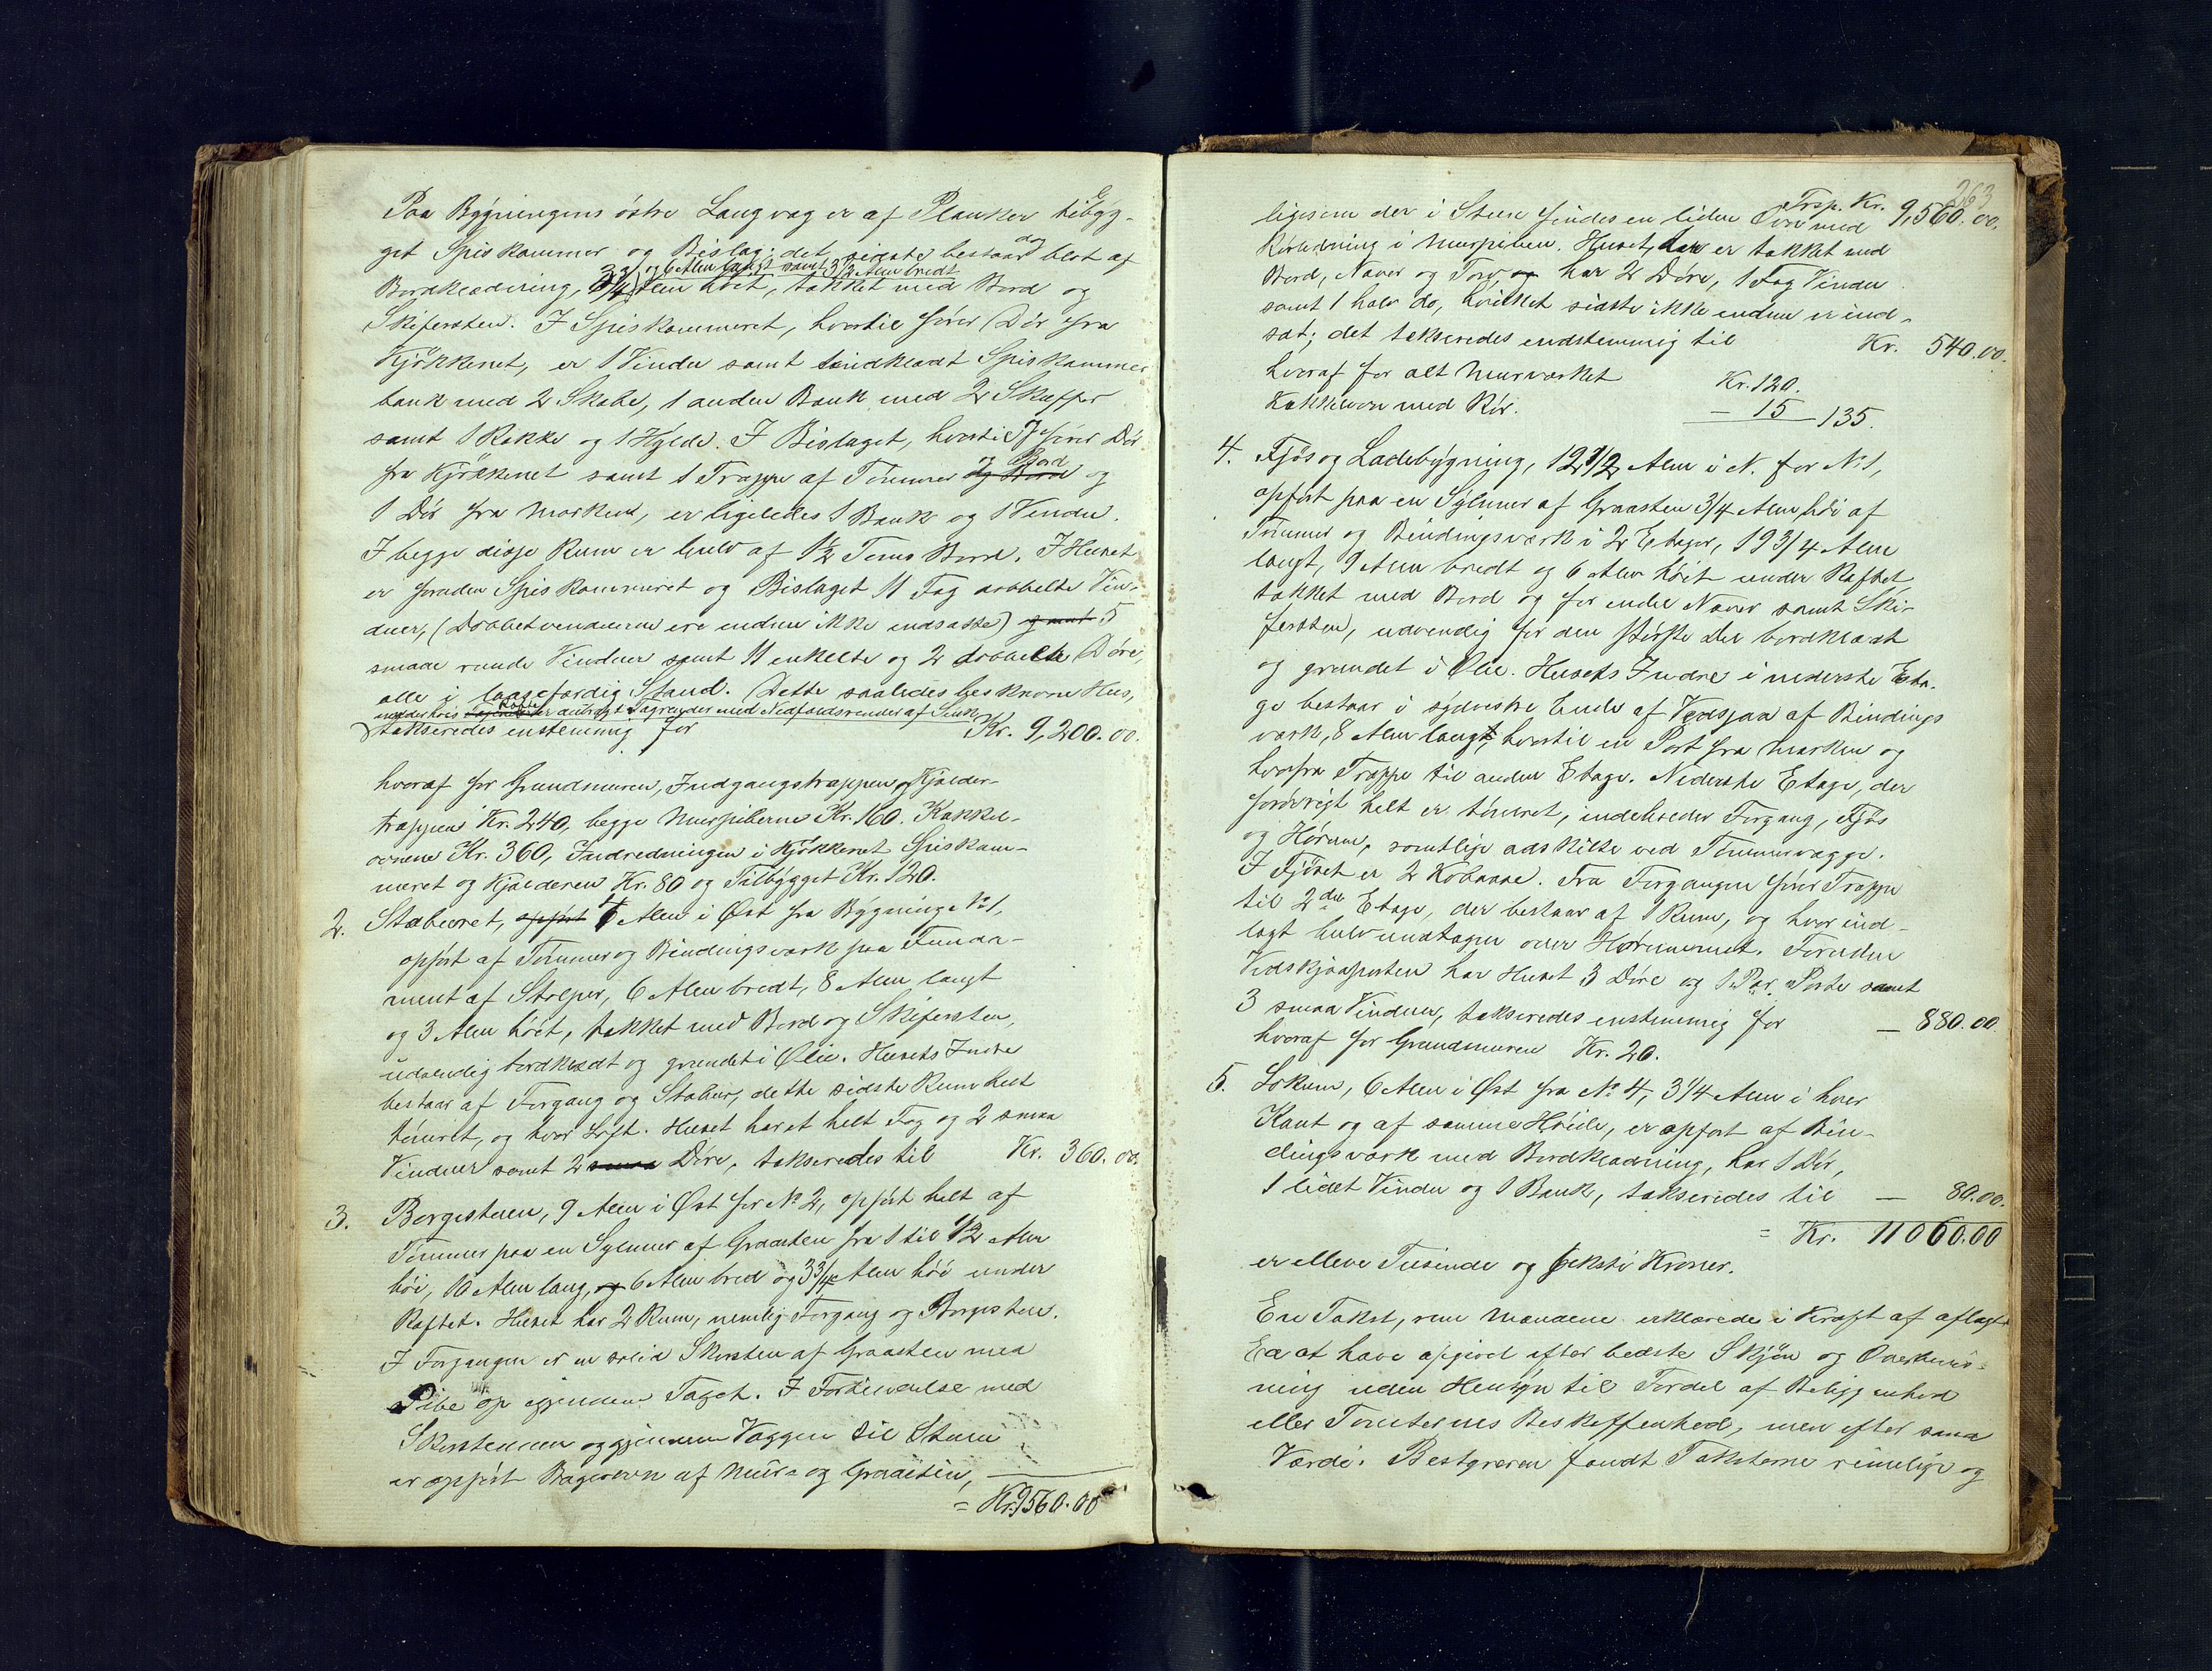 Paa Bygningens östre Langvæg er af Planker tilbyg-
get Spiskammer og Bislag; det sidste bestaar dog blot af
Bordklædning, 3 3/4 Alen höit, og 6 Alen langt samt 3 1/2 Alen bredt, tækket med Bord og
Skifersten. I Spiskammeret, hvortil förer Dör fra
Kjökkenet, er 1 Vindu samt indklædt Spiskammer
bænk med 2 Skabe, 1 anden Bænk med 2 Skuffer
samt 1 Række og 1 Hylde. I Bislaget, hvortil förer Dör
fra Kjökkenet samt 1 Trappe af Tömmer og Bord og
1 Dör fra Marken, er ligeledes 1 Bænk og 1 Vindu.
I begge disse Rum er Gulv af 1½ Toms Bord. I Huset
er foruden Spiskammeret og Bislaget 11 Fag dobbelte Vin-
duer, (Dobbeltvinduerne ere endnu ikke indsatte) samt 5
smaae runde Vinduer samt 11 enkelte og 2 dobbelte Döre,
alle i laasefærdig Stand. Dette saaledes beskrevne Hus,
under hvis Rafter er anbragt Tagrender med Nedfaldsrender af Sink
takseredes enstemmig for Kr. 9,200.00.
hvoraf for Grundmuren, Indgangstrappen og Kjælder-
trappen Kr. 240, begge Murpiberne Kr. 160. Kakkel-
ovnene Kr. 360, Indredningen i Kjökkenet Spiskam-
meret og Kjælderen Kr. 80 og Tilbygget Kr. 120.
2. Stabburet, opfört Alen i Öst fra Bygninge No 1,
opfört af Tömmer og Bindingsværk paa Funda-
ment af Stolper, 6 Alen bredt, 8 Alen langt
og 3 Alen höit, tækket med Bord og Skifersten,
udvendig bordklædt og grundet i Olie. Husets Indre
bestaar af Forgang og Stabur, dette sidste Rum helt
tömret, og hvor Loft. Huset har et helt Fag og 2 smaa
Vinduer samt 2 smaa Döre, takseredes til Kr. 360.00.
3. Borgestuen, 9 Alen i Öst for No 2, opfört helt af
Tömmer paa en Sylmur af Graasten fra 1 til 1/2 Alen
höi, 10 Alen lang, og 6 Alen bred og 3 3/4 Alen höi under
Raftet. Huset har 2 Rum, nemlig Forgang og Borgestue.
I Forgangen er en solid Skorsten af Graasten med
Pibe op igjennem Taget. I Forbindelse med
Skorstenen og gjennem Væggen til Stuen
er opfört Bagerovn af Mur- og Graasten,
= Kr. 9560.00
263
Trsp. Kr. 9,560.00.
ligesom der i Stuen findes en liden Ovn med
Rörledning i Murpiben. Huset, der er tækket med
Bord, Næver og Torv, og har 2 Döre, 1 Fag Vindu
samt 1 halv do, hvilket sidste ikke endnu er ind-
sat; det takseredes endstemmig til Kr. 540.00.
hvoraf for alt Murværket Kr. 120.
Kakkelovn med Rör. — 15 — 135.
4. Fjös og Ladebygning, 12 1/2 Alen i N. for No 1,
opfört paa en Sylmur af Graasten 3/4 Alen höi af
Tömmer og Bindingsværk i 2 Etager, 19 3/4 Alen
langt, 9 Alen bredt og 6 Alen höit under Raftet,
tækket med Bord og for endel Næver samt Ski-
fersten, udvendig for den störste Del bordklædt
og grundet i Olie. Husets Indre i nederste Eta-
ge bestaar i sydvestre Ende af Vedsjaa af Bindings
værk, 8 Alen langt, hvortil en Port fra Marken og
hvorfra Trappe til anden Etage. Nederste Etage, der
forövrigt helt er tömret, indeholder Forgang, Fjös
og Hörum, samtlige adskilte ved Tömmervægge.
I Fjöset er 2 Kobaase. Fra Forgangen förer Trappe
til 2den Etage, der bestaar af 1 Rum, og hvor ind-
lagt Gulv undtagen over Hörummet. Foruden
Vedskjaaporten har Huset 3 Döre og 1 Par Porte samt
3 smaa Vinduer, takseredes enstemmig for — 880.00.
hvoraf for Grundmuren Kr. 20.
5. Lokum, 6 Alen i Öst fra No 4, 3 1/4 Alen i hver
Kant og af samme Höide, er opfört af Bin-
dingsværk med Bordklædning, har 1 Dör,
1 lidet Vindu og 1 Bænk, takseredes til — 80.00.
= Kr. 11060.00
er elleve Tusinde og seksti Kroner.
En Takst, som Mændene erklærede i Kraft af aflagt
Ed at have opgivet efter bedste Skjön og Overbevis-
ning uden Hensyn til Fordel af Beliggenhed
eller Tomternes Beskaffenhed, men efter sand
Værdi. Bestyreren fandt Taksterne rimelige og